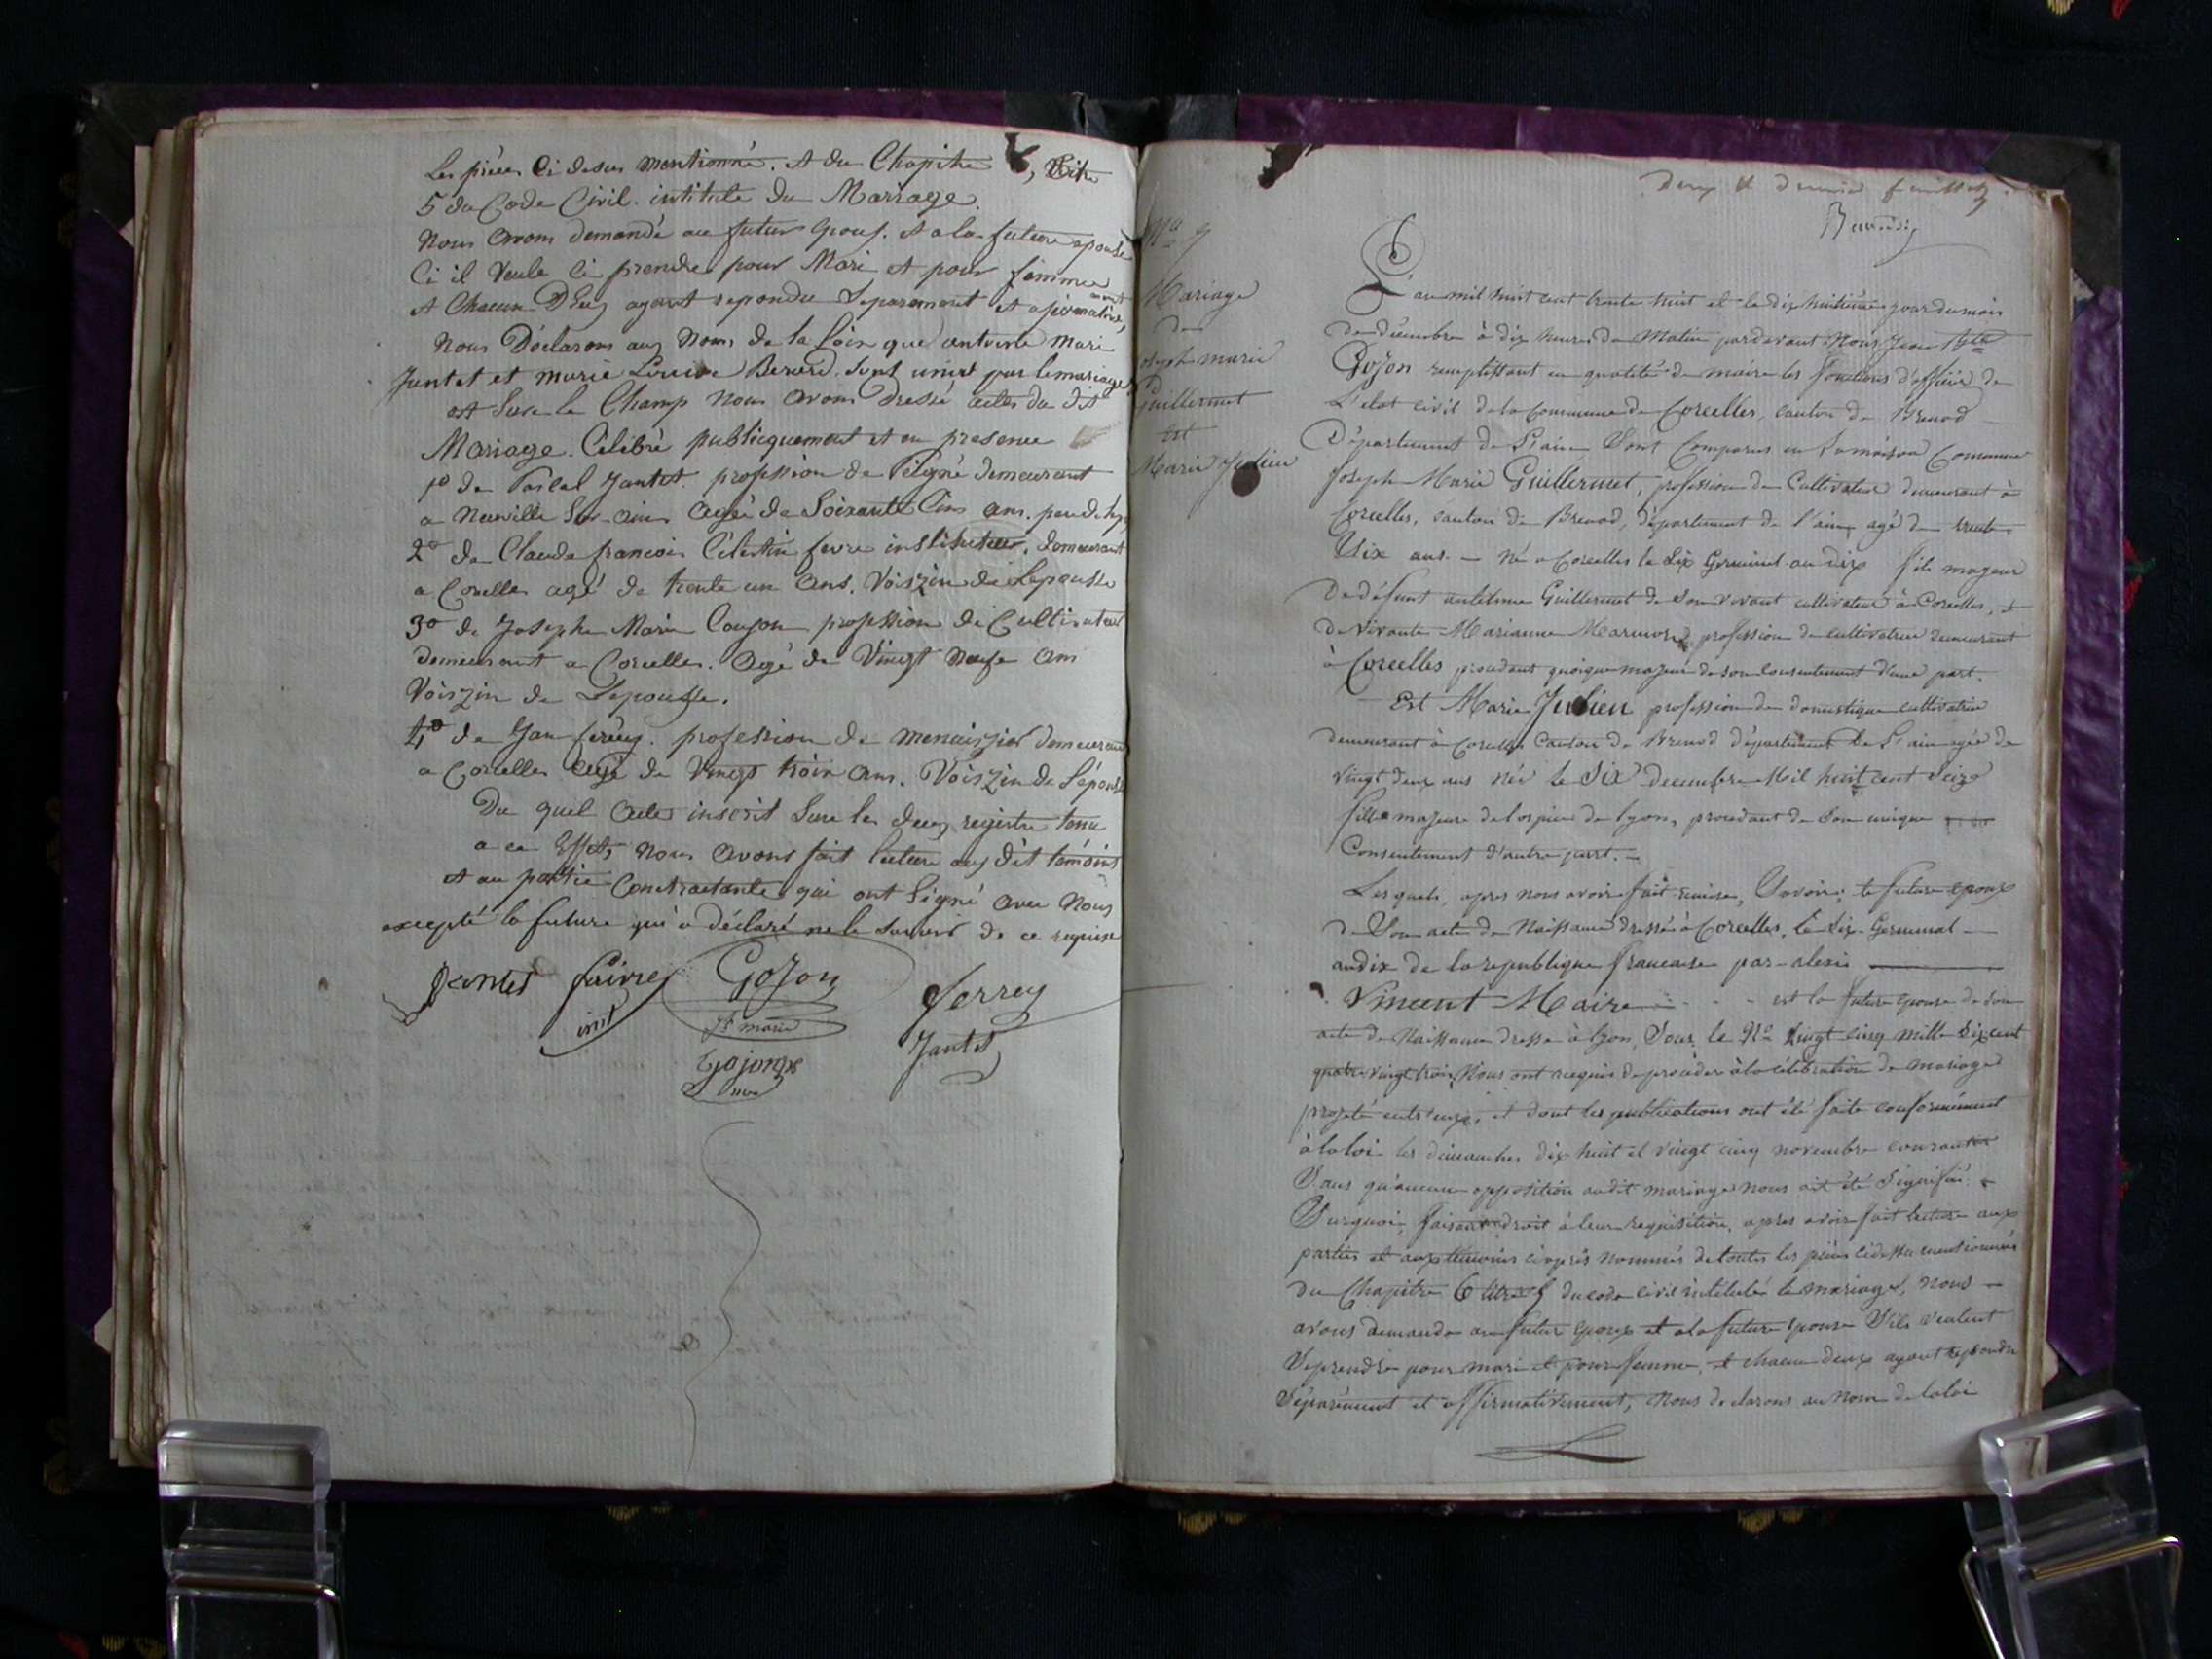 Les pièces Ci desus mentionné. et du Chapitre 6, titre
5 du Code Civil. intitule du Mariage.
Nous Avons demandé au futur Epoux. et a la future epouse
Ci il Veule ce prendre pour Mari et pour femme
et Chacun D'Eux ayant repondu Separamant et afirmative,
Nous Déclarons aux Noms de la Loix que
Jantet et marie Louise Berard. sont unist par le mariage
et Sur le Champ Nous Avons Dressé actes du dit
Mariage. Célébré publicquement et en presence
1º de Pascal Jantet. profession de Peigné demeurant
a Neuville Sur Ain Agée de Soixante Cinq Ans.
2º de Claude francois Célestin favre instituteur, demeurant
a Corcelles agé de trente un Ans. Voiszin de Lepousse
3º de Joseph Marie Coujon profession de Cultivateur
demeurant a Corcelles. Agé de Vingt Neufe Ans
Voiszin de Lepousse.
4º de Jan ferrey. profession de menuiszier demeurant
a Corcelles Agé de Vingt trois Ans. Voiszin de Lépouse
Du quel Acte inscrit Sure les deux registre tenu
a ce Effet, Nous Avons fait lecture aux dit témoins
et au partie Contractante qui ont Signé Avec Nous
excepté la future qui a déclaré ne le savoir de ce requise
Jantet favre Gojon ferrey
inst
maire
Jantet
Deux et dernier feuillet
Nº 9
Mariage
de
Joseph marie
Guillermet
et
Marie Julien
L'an mil huit cent trente huit et le dix huitième jour du mois
de décembre à dix heures du Matin pardevant Nous Jean Bte
Gojon remplissant en qualité de maire les fonctions d'officier de
L'etat civil de la Commune de Corcelles, canton de Brenod
Département de L'ain Sont Comparus en la maison Commune
Joseph Marie Guillermet, profession de Cultivateur demeurant à
Corcelles, canton de Brenod, département de l'ain, agé de trente
Six ans. — né a Corcelles le dix Germinal an dix fils majeur
De défunt antelme Guillermet de Son vivant cultivateur à Corcelles, et
de vivante Marianne profession de cultivateur demeurant
à Corcelles procedant quoique majeur de son consentement d'une part.
Est Marie Julien profession de domestique cultivatrice
demeurant à Corcelles Canton de Brenod département de L'ain agée de
vingt deux ans née le Six decembre Mil huit cent Seize
fille majeure de lospice de Lyon, procedant de Son unique
Consentement d'autre part. —
Lesquels, apres nous avoir fait remise, Savoir: le futur epoux
de Son acte de Naissance dressé à Corcelles, le dix Germinal —
an dix de la republique francaise par alexis
Vincent Maire et la future epouse de Son
acte de Naissance dressé à Lyon, Sous le Nº Vingt cinq mille Six cent
quatre vingt trois, Nous ont requis de procéder à la célébration de mariage
projeté entr'eux, et dont les publications ont été faite conformément
à la loi les dimanches dix huit et vingt cinq novembre courant
Sans qu'aucune opposition au dit mariage nous ait été Signifié.
Surquoi, faisant droit à leur requisition, apres avoir fait lecture aux
parties et aux témoins ciapres nommés de toutes les pièces cidessu mentionnées
du Chapitre 6 titre 5 du code civil intitulé le mariage, nous —
avons demandé au futur epoux et a la future epouse S'ils veulent
Se prendre pour mari et pour femme, et chacun deux ayant repondu
Séparément et affirmativement, Nous declarons au Nom de la loi